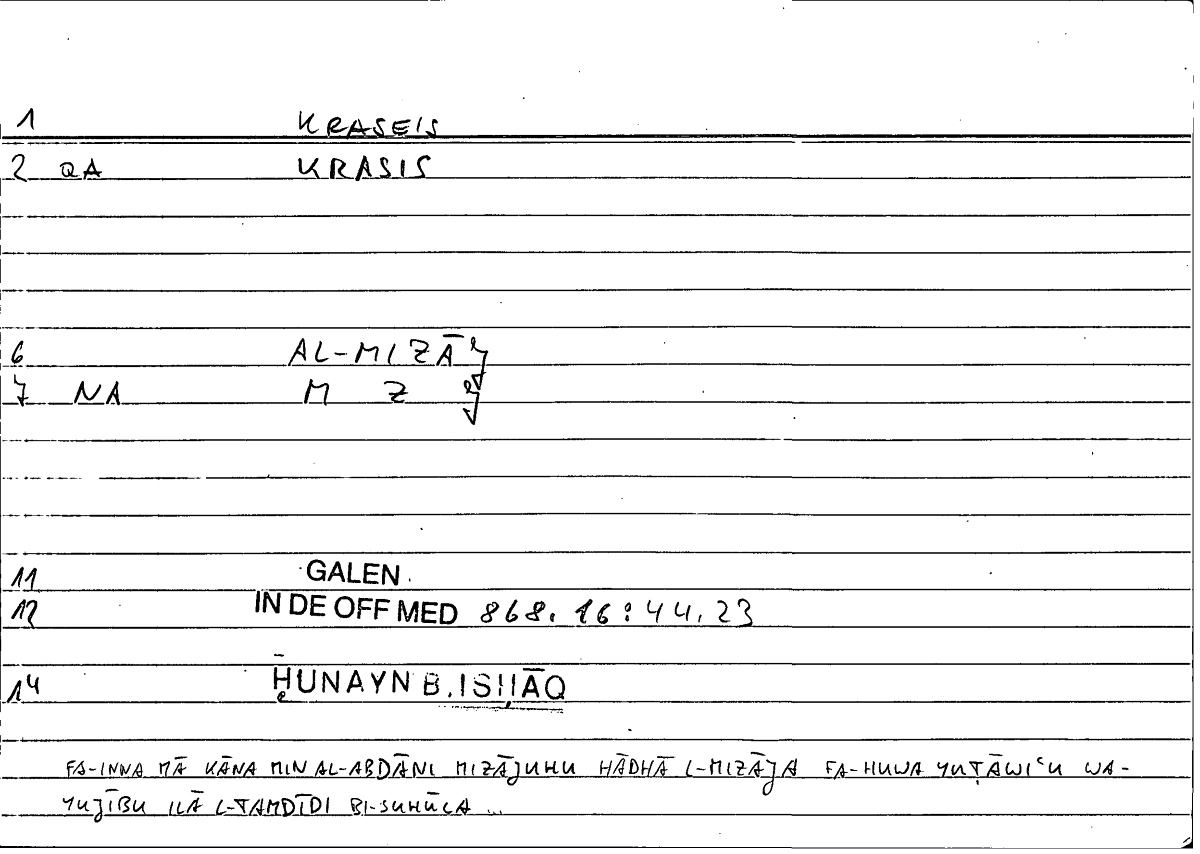 1 KRASEIS
2 QA KRASIS
6 AL-MIZĀǧ
7 NA M Z ǧ
11 GALEN
12 IN DE OFF MED 868. 16 : 44. 23
14 ḤUNAYN B. ISḤĀQ
FA-INNA MĀ KĀNA MIN AL-ABDĀNI MIZĀJUHU HĀDHĀ L-MIZĀJA FA-HUWA YUṬĀWIʿU WA-
YUJĪBU ILĀ L-TAMDĪDI BI-SUHŪLA ...